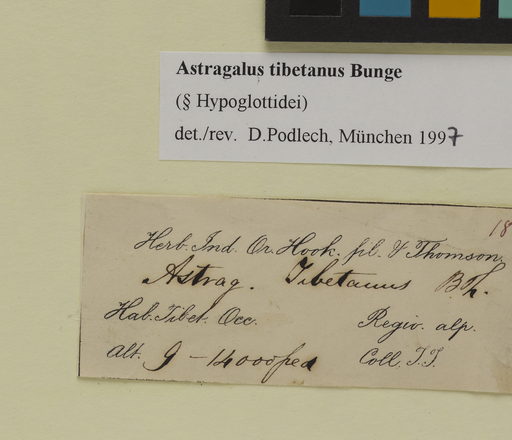 Astragalus tibetanus Bunge
(§ Hypoglottidei)
det./rev. D.Podlech, München 1997
18
Herb. Ind. Or. Hook. fil. & Thomson
Astrag. Tibetanus Bth.
Hab. Tibet. Occ. Regio. alp.
Alt. 9 - 14000 ped Coll. T.T.